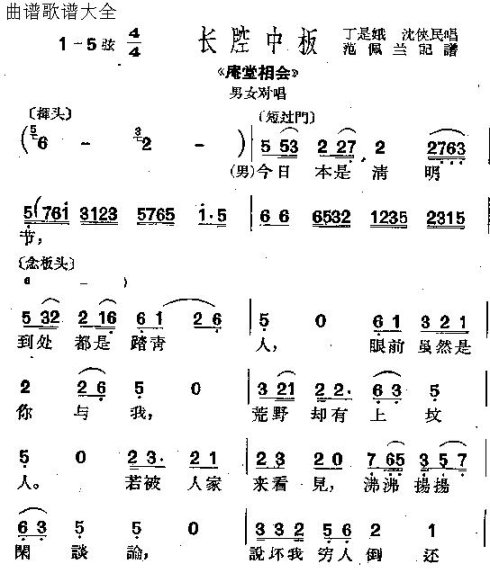 曲谱歌谱大全
1-5弦 4/4 长腔中板 丁是娥 沈俠民唱
范佩兰記譜
《庵堂相会》
男女对唱
〔短过門〕
(5 6 - 3 2 - ) 5 53 2 27 2 2763
(男)今日 本是 清 明
5(761 3123 5765 1·5 6 6 6532 1235 2315
节,
〔念板头〕
6 - )
5 32 2 16 6 1 2 6 5 0 6 1 3 2 1
到处 都是 踏青 人, 眼前 虽然是
2 2 6 5 0 3 21 2 2· 6 3 5
你 与 我, 荒野 却有 上 坟
5 0 2 3· 2 1 2 3 2 0 7 65 3 5 7
人。 若被 人家 来看 見, 沸沸 揚揚
6 3 5 5 0 3 3 2 5 6 2 1
閑 談 論, 說坏我 穷人 倒 还